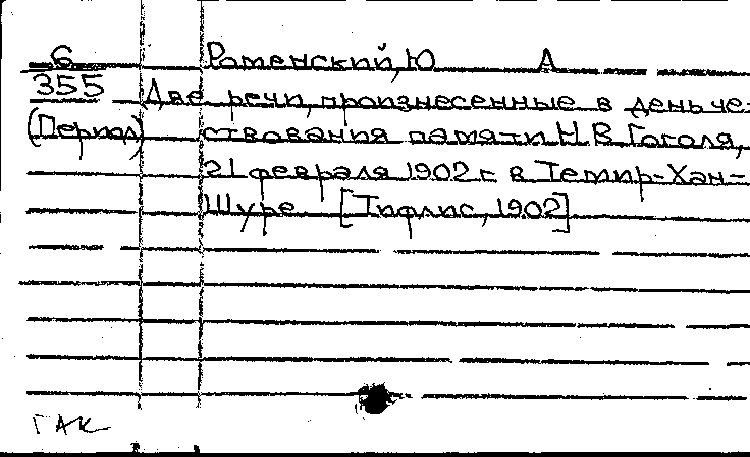 6 Роменский, Ю А
355 Две речи, произнесенные в день че-
(Период) ствования памяти Н. В. Гоголя,
21 февраля 1902 г. в Темир-Хан-
Шуре. [Тифлис, 1902]
ГАК